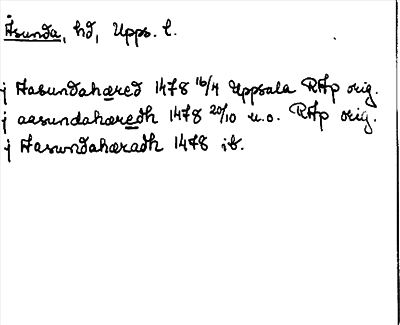 Åsunda, hd, Upps. l.
j Aasundahæred 1478 16/4 Uppsala RAp orig.
j aasundahæredh 1478 20/10 u.o. RAp orig.
j Aasundahæradh 1478 ib.